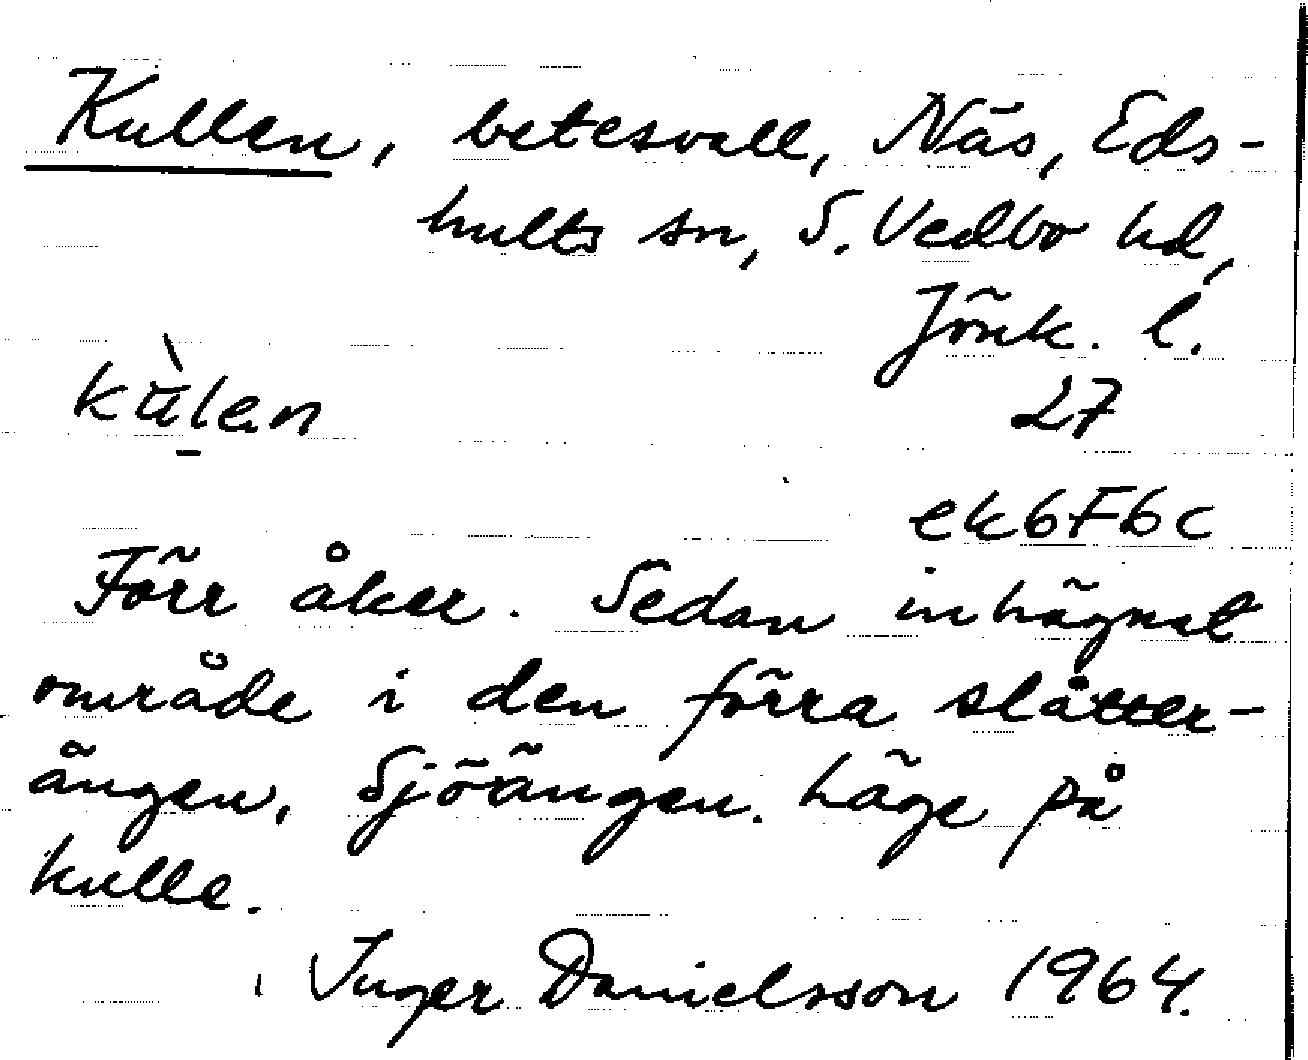 Kullen, betesvall, Näs, Eds-
hults sn, S. Vedbo hd,
Jönk. l.
kùlen
27
ek6F6c
Förr åker. Sedan inhägnat
område i den förra slåtter-
ängen, Sjöängen. Läge på
kulle.
Inger Danielsson 1964.